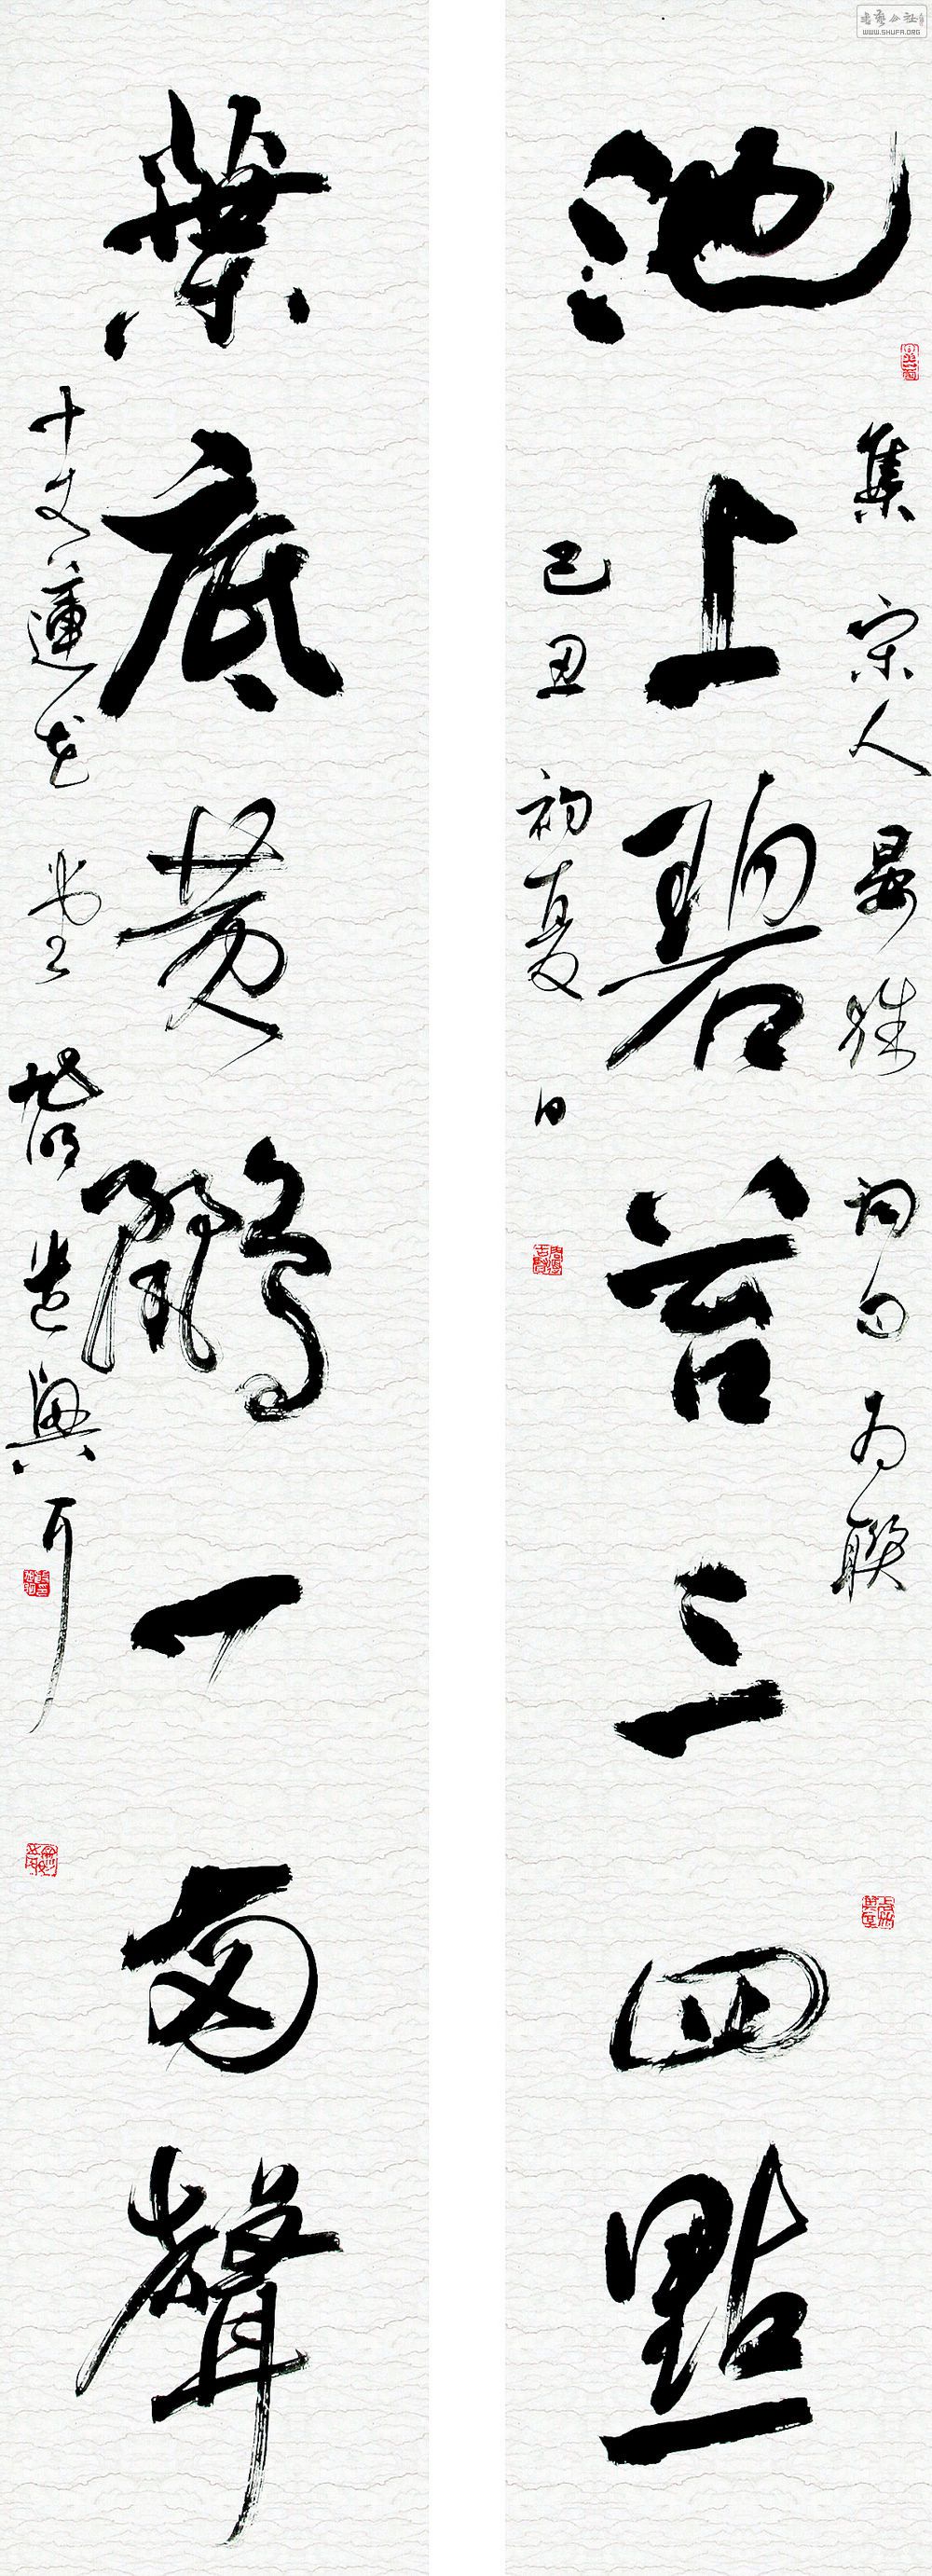 書藝公社
WWW.SHUFA.ORG
池上碧苔三四點
集宋人晏殊詞句為聯
己丑初夏日
葉底黃鸝一兩聲
十丈蓮花堂
造興耳